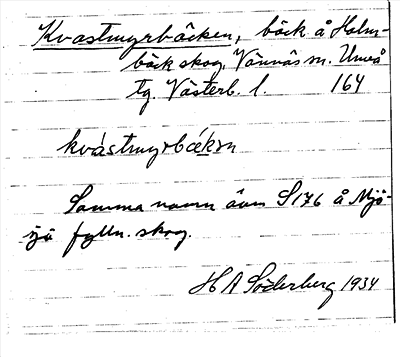 Kvastmyrbäcken, bäck å Holm-
bäck skog, Vännäs sn. Umeå
tg. Västerb. l. 164
kvástmyrbékɛn
Samma namn även S176 å Mjö-
sjö fylln. skog.
H A Söderberg 1934